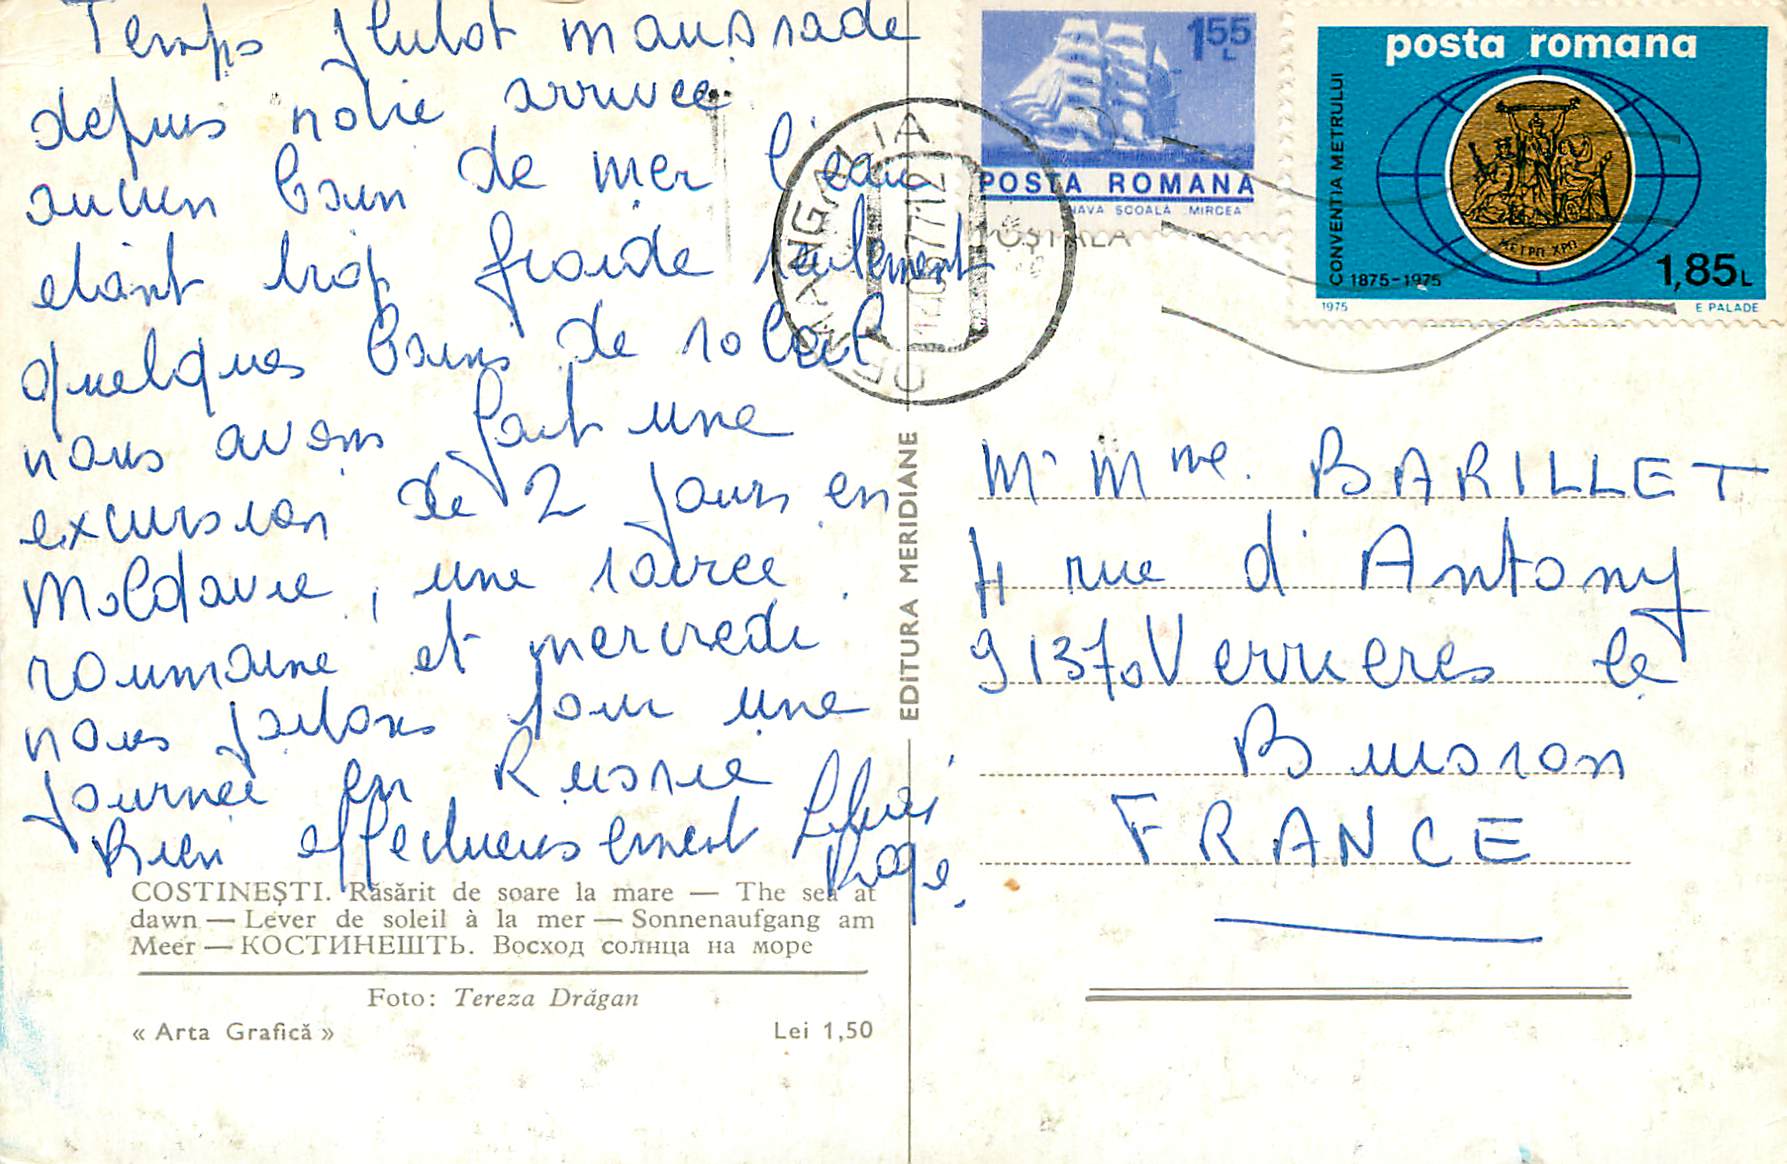 Temps plutot maussade
depuis notre arrivée
aucun bain de mer l'eau
étant trop froide seulement
quelques bains de soleil
nous avons fait une
excursion de 2 jours en
Moldavie, une soirée
roumaine et mercredi
nous partons pour une
journée en Russie
Bien affectueusement
COSTINEȘTI. Răsărit de soare la mare — The sea at
dawn — Lever de soleil à la mer — Sonnenaufgang am
Meer — КОСТИНЕШТЬ. Восход солнца на море
Foto: Tereza Drăgan
« Arta Grafică »
Lei 1,50
EDITURA MERIDIANE
155 L
POSTA ROMANA
NAVA SCOALA "MIRCEA"
posta romana
CONVENTIA METRULUI
1875-1975
ΜΕΤΡΩ ΧΡΩ
1,85L
1975
E PALADE
MANGALIA
77.12
Mr Mme. BARILLET
4 rue d'Antony
91370 Verrieres le
Buisson
FRANCE